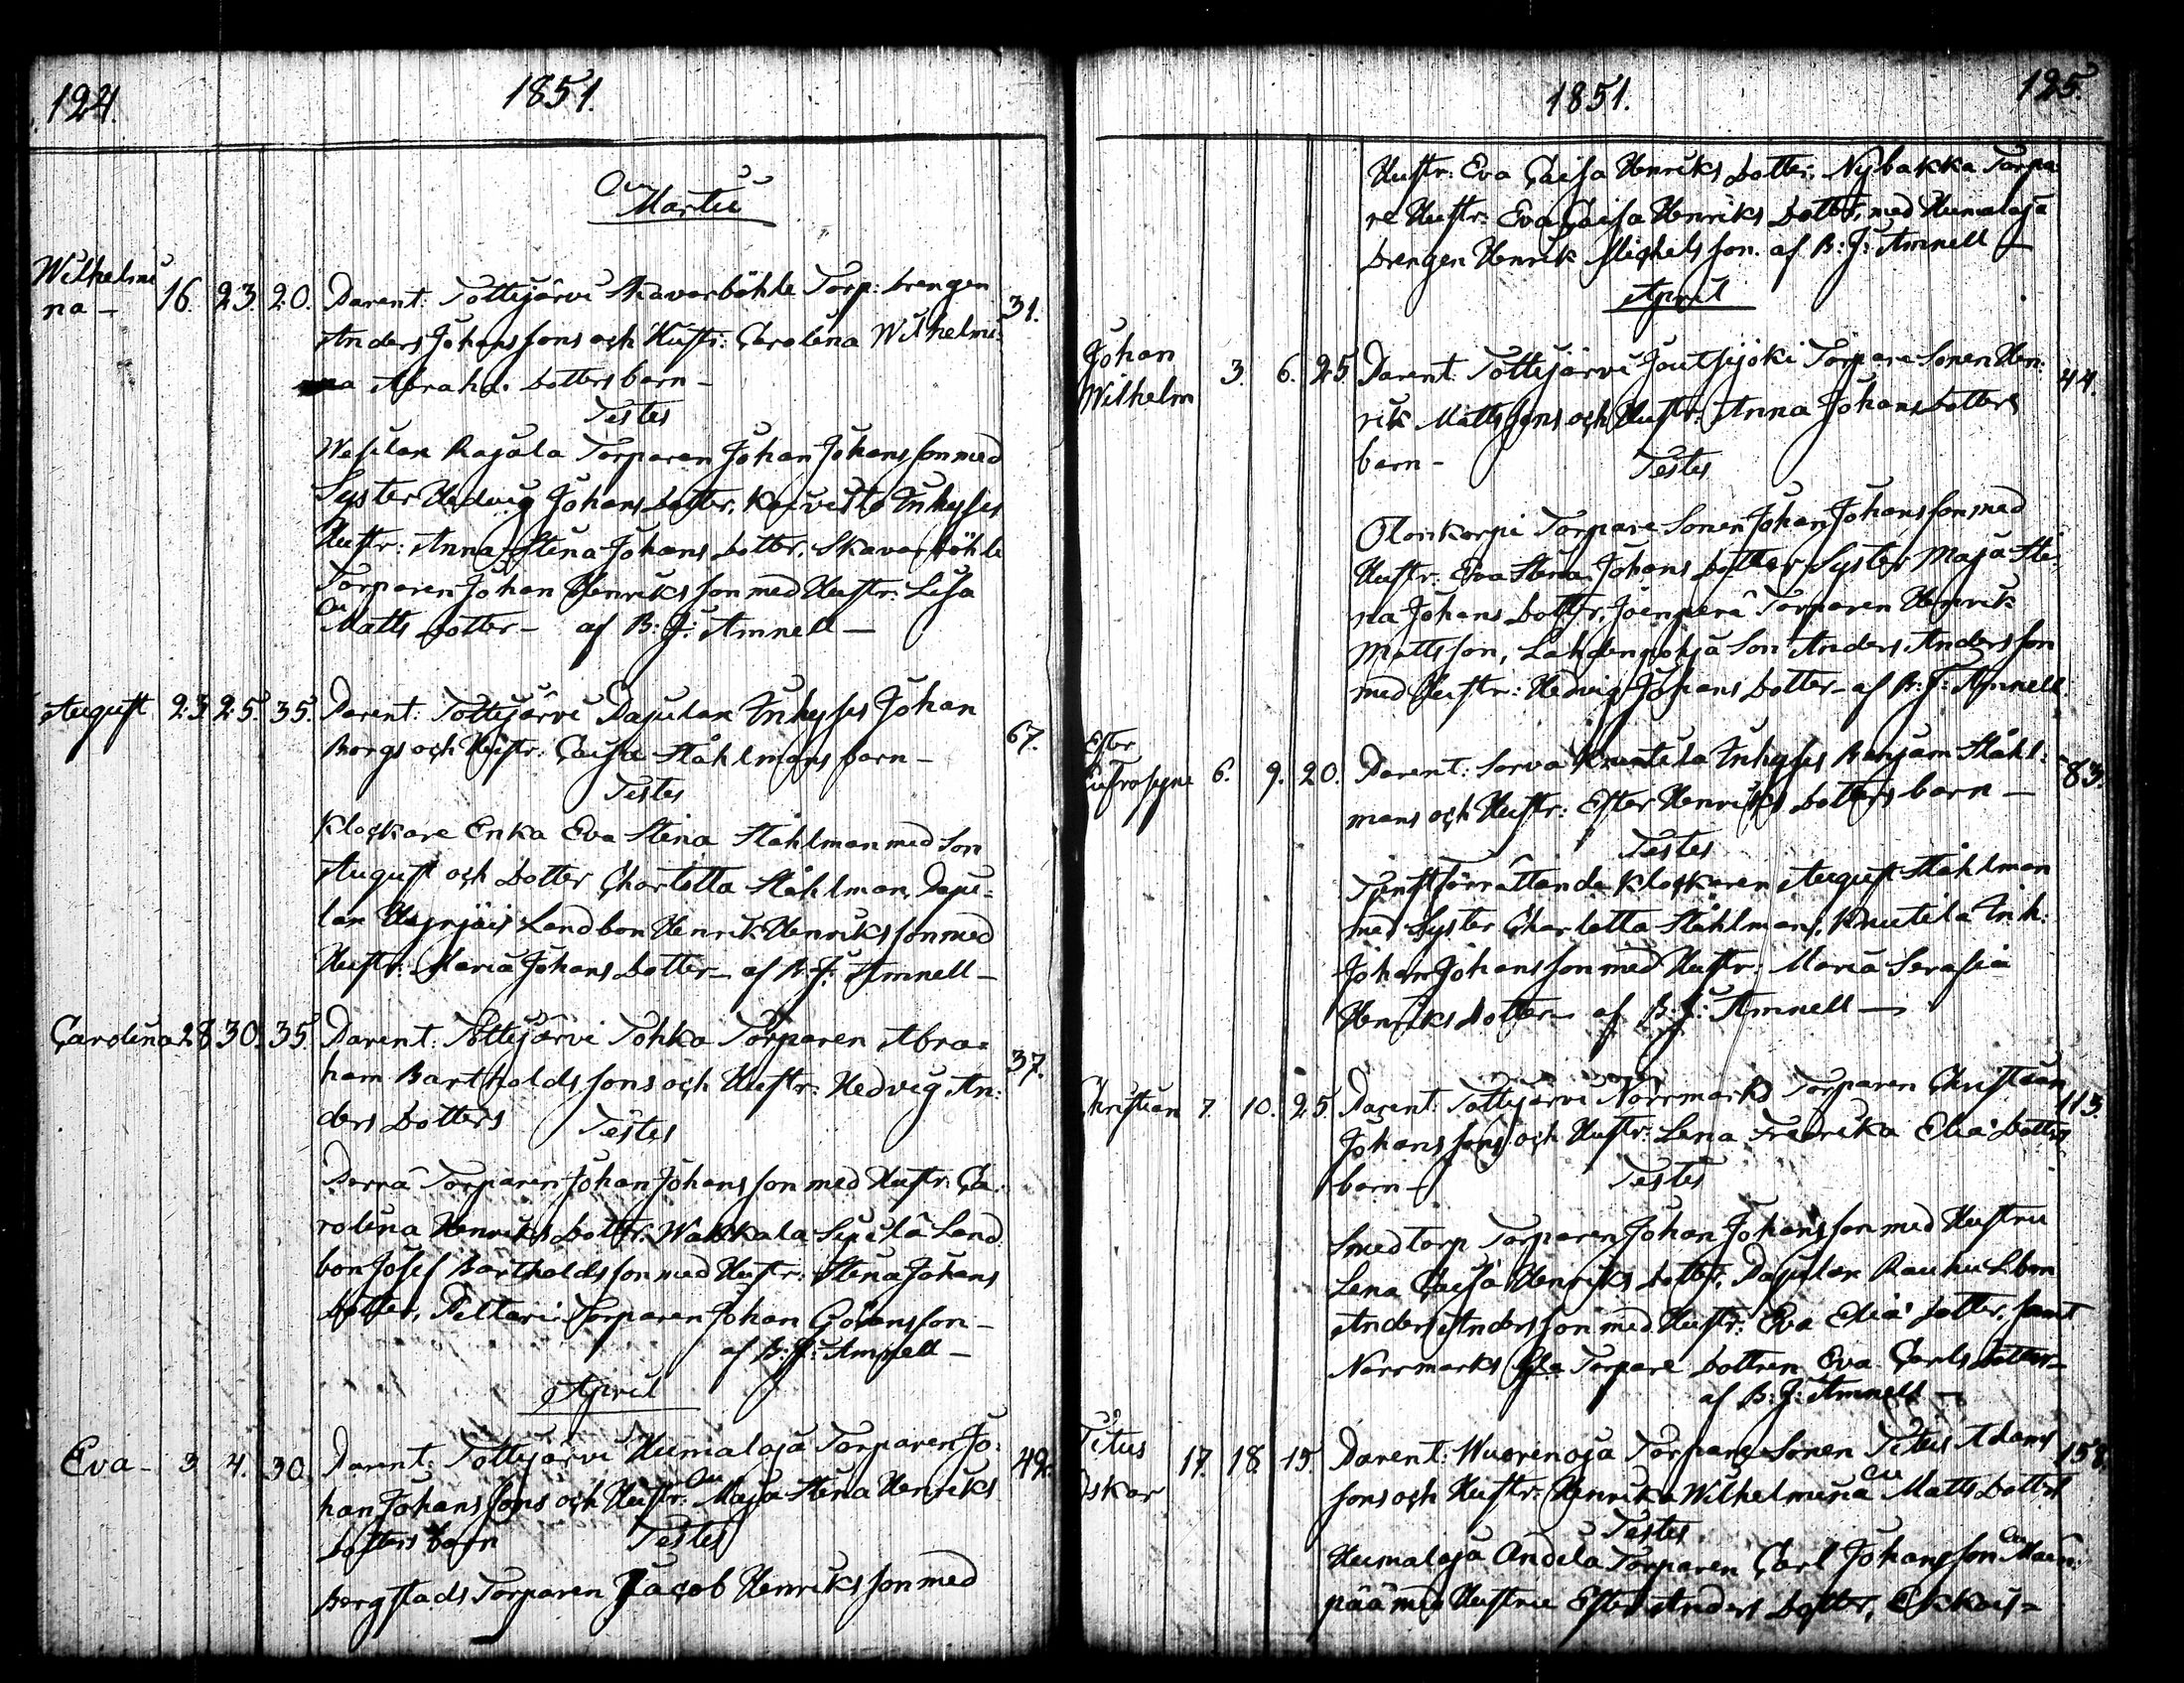 124.
1851.
Martii
Wilhelmi
na - 16. 23. 20. Parent: Tottijärvi Skavarböhle Torp: drengen 31.
Anders Johanssons och Hustr: Carolina Wilhelmi:
na Abrah: dotters barn -
Testes
Wesilax Rajala Torparen Johan Johansson med
Syster Hedvig Johans dotter, Koivisto Inhyses
Hustr: Anna Stina Johans dotter, Skavarböhle
Torparen Johan Henriksson med Hustr: Lisa
Matts dotter - af B: J: Amnell -
August 23. 25. 35. Parent: Tottijärvi Pajulax Inhyses Johan 67.
Borgs och Hustr: Caisa Ståhlmans barn -
Testes
Klockare Enka Eva Stina Ståhlman med Son
August och dotter Charlotta Ståhlman, Paju=
lax Landbon Henrik Henriksson med
Hustr: Maria Johans dotter - af B: J: Amnell -
Carolina 28. 30. 35. Parent: Tottijärvi Tohka Torparen Abra= 37.
ham Bartholdssons och Hustr: Hedvig An:
ders dotters Testes
Perrä Torparen Johan Johansson med Hustr: Ca:
rolina Henriks dotter, Wakkala Sipilä Land
bon Josef Bartholdsson med Hustr: Stina Johans
dotter, Peltari Torparen Johan Göransson -
af B: J: Amnell -
April
Eva - 3 4. 30. Parent: Tottijärvi Humaloja Torparen Jo: 49.
han Johanssons och Hustr: Maja Stina Henriks
dotters barn Testes
Bergstads Torparen Jacob Henriksson med
1851.
125.
Hustr: Eva Caisa Henriks dotter, Nybakka Torpa
re Hustr: Eva Caisa Henriks dotter, med Humaloja
drengen Henrik Michelsson. af B: J: Amnell -
April
Johan
Wilhelm 3. 6. 25. Parent: Tottijärvi Joutsijoki Torpare Sonen Hen: 44.
rik Mattssons och Hustr: Anna Johans dotters
barn - Testes
Olonkorpi Torpare Sonen Johan Johansson med
Hustr: Eva Stina Johans dotter, Syster Maja Sti:
na Johans dotter, Joenperä Torparen Henrik
Mattsson, Lahdenpohja Son Anders Andersson
med Hustr: Hedvig Johans dotter - af B: J: Amnell
Ester
Eufrosyne 6. 9. 20. Parent: Sorva Knutila Inhyses Benjam Ståhl: 83.
mans och Hustr: Ester Henriks dotters barn -
Testes
Tjenstförrättande Klockaren August Ståhlman
med Syster Charlotta Ståhlman, Knutila Inh:
Johan Johansson med Hustr: Maria Serafia
Henriks dotter - af B: J: Amnell -
Christian 7. 10. 25. Parent: Tottijärvi Norrmarks Torparen Christian 113.
Johanssons och Hustr: Lena Fredrika Eliæ dotters
barn - Testes
Smedtorp Torparen Johan Johansson med Hustru
Lena Caisa Henriks dotter, Pajulax Rauhu Lbon
Anders Andersson med Hustr: Eva Eliæ dotter, samt
Norrmarks Torpare dottren Eva Carls dotter -
af B: J: Amnell -
Titus
Oskar 17. 18. 15. Parent: Wuorenoja Torpare Sonen Titus Adams 158.
sons och Hustr: Henrika Wilhelmina Matts dotters
Testes
Humaloja Andila Torparen Carl Johansson Maen:
pää med Hustru Ester Anders dotter, Eskois=